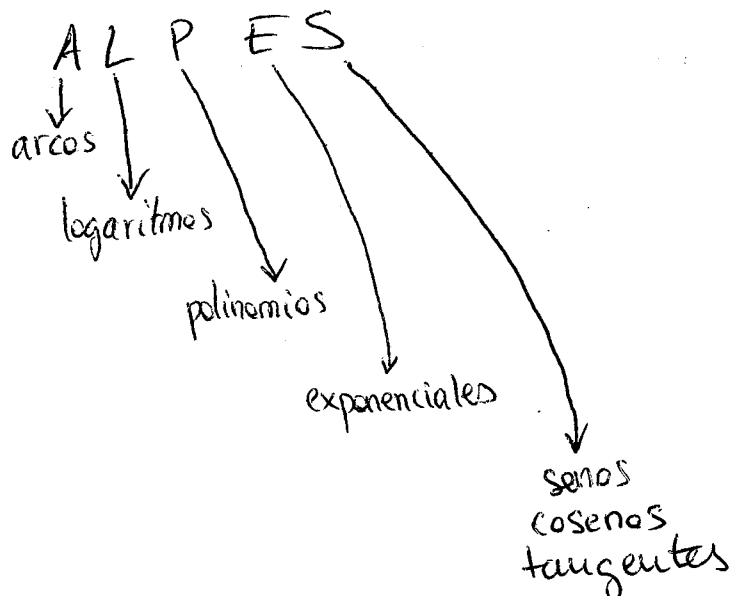 A L P E S
arcos
logaritmos
polinomios
exponenciales
senos
cosenos
tangentes